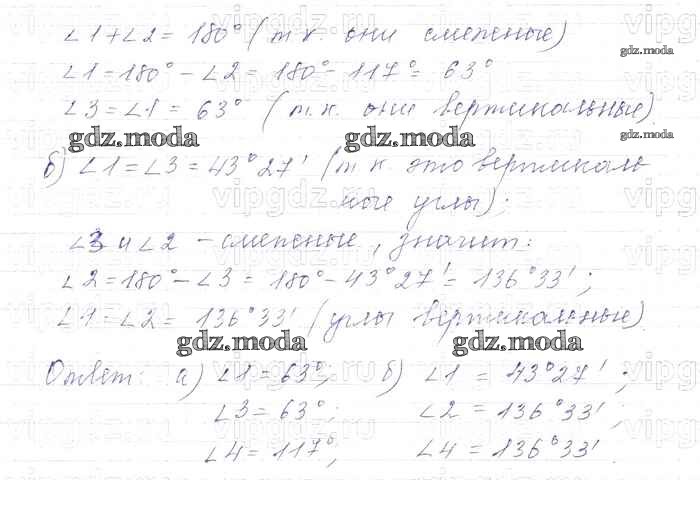 ∠1+∠2= 180° (т.к. они смежные)
gdz.moda
∠1=180° - ∠2 = 180° - 117° = 63°
∠3=∠1 = 63° (т.к. они вертикальные).
gdz.moda
gdz.moda gdz.moda
б) ∠1=∠3 = 43°27' (т.к. это вертикаль
ные углы);
∠3 и ∠2 - смежные, значит:
∠2=180°-∠3 = 180° - 43°27' = 136°33';
∠4 = ∠2 = 136°33' (углы вертикальные).
gdz.moda gdz.moda
Ответ: а) ∠1 = 63°; б) ∠1 = 43°27';
∠3 = 63°; ∠2 = 136°33';
∠4 = 117°; ∠4 = 136°33'.
vipgdz.ru